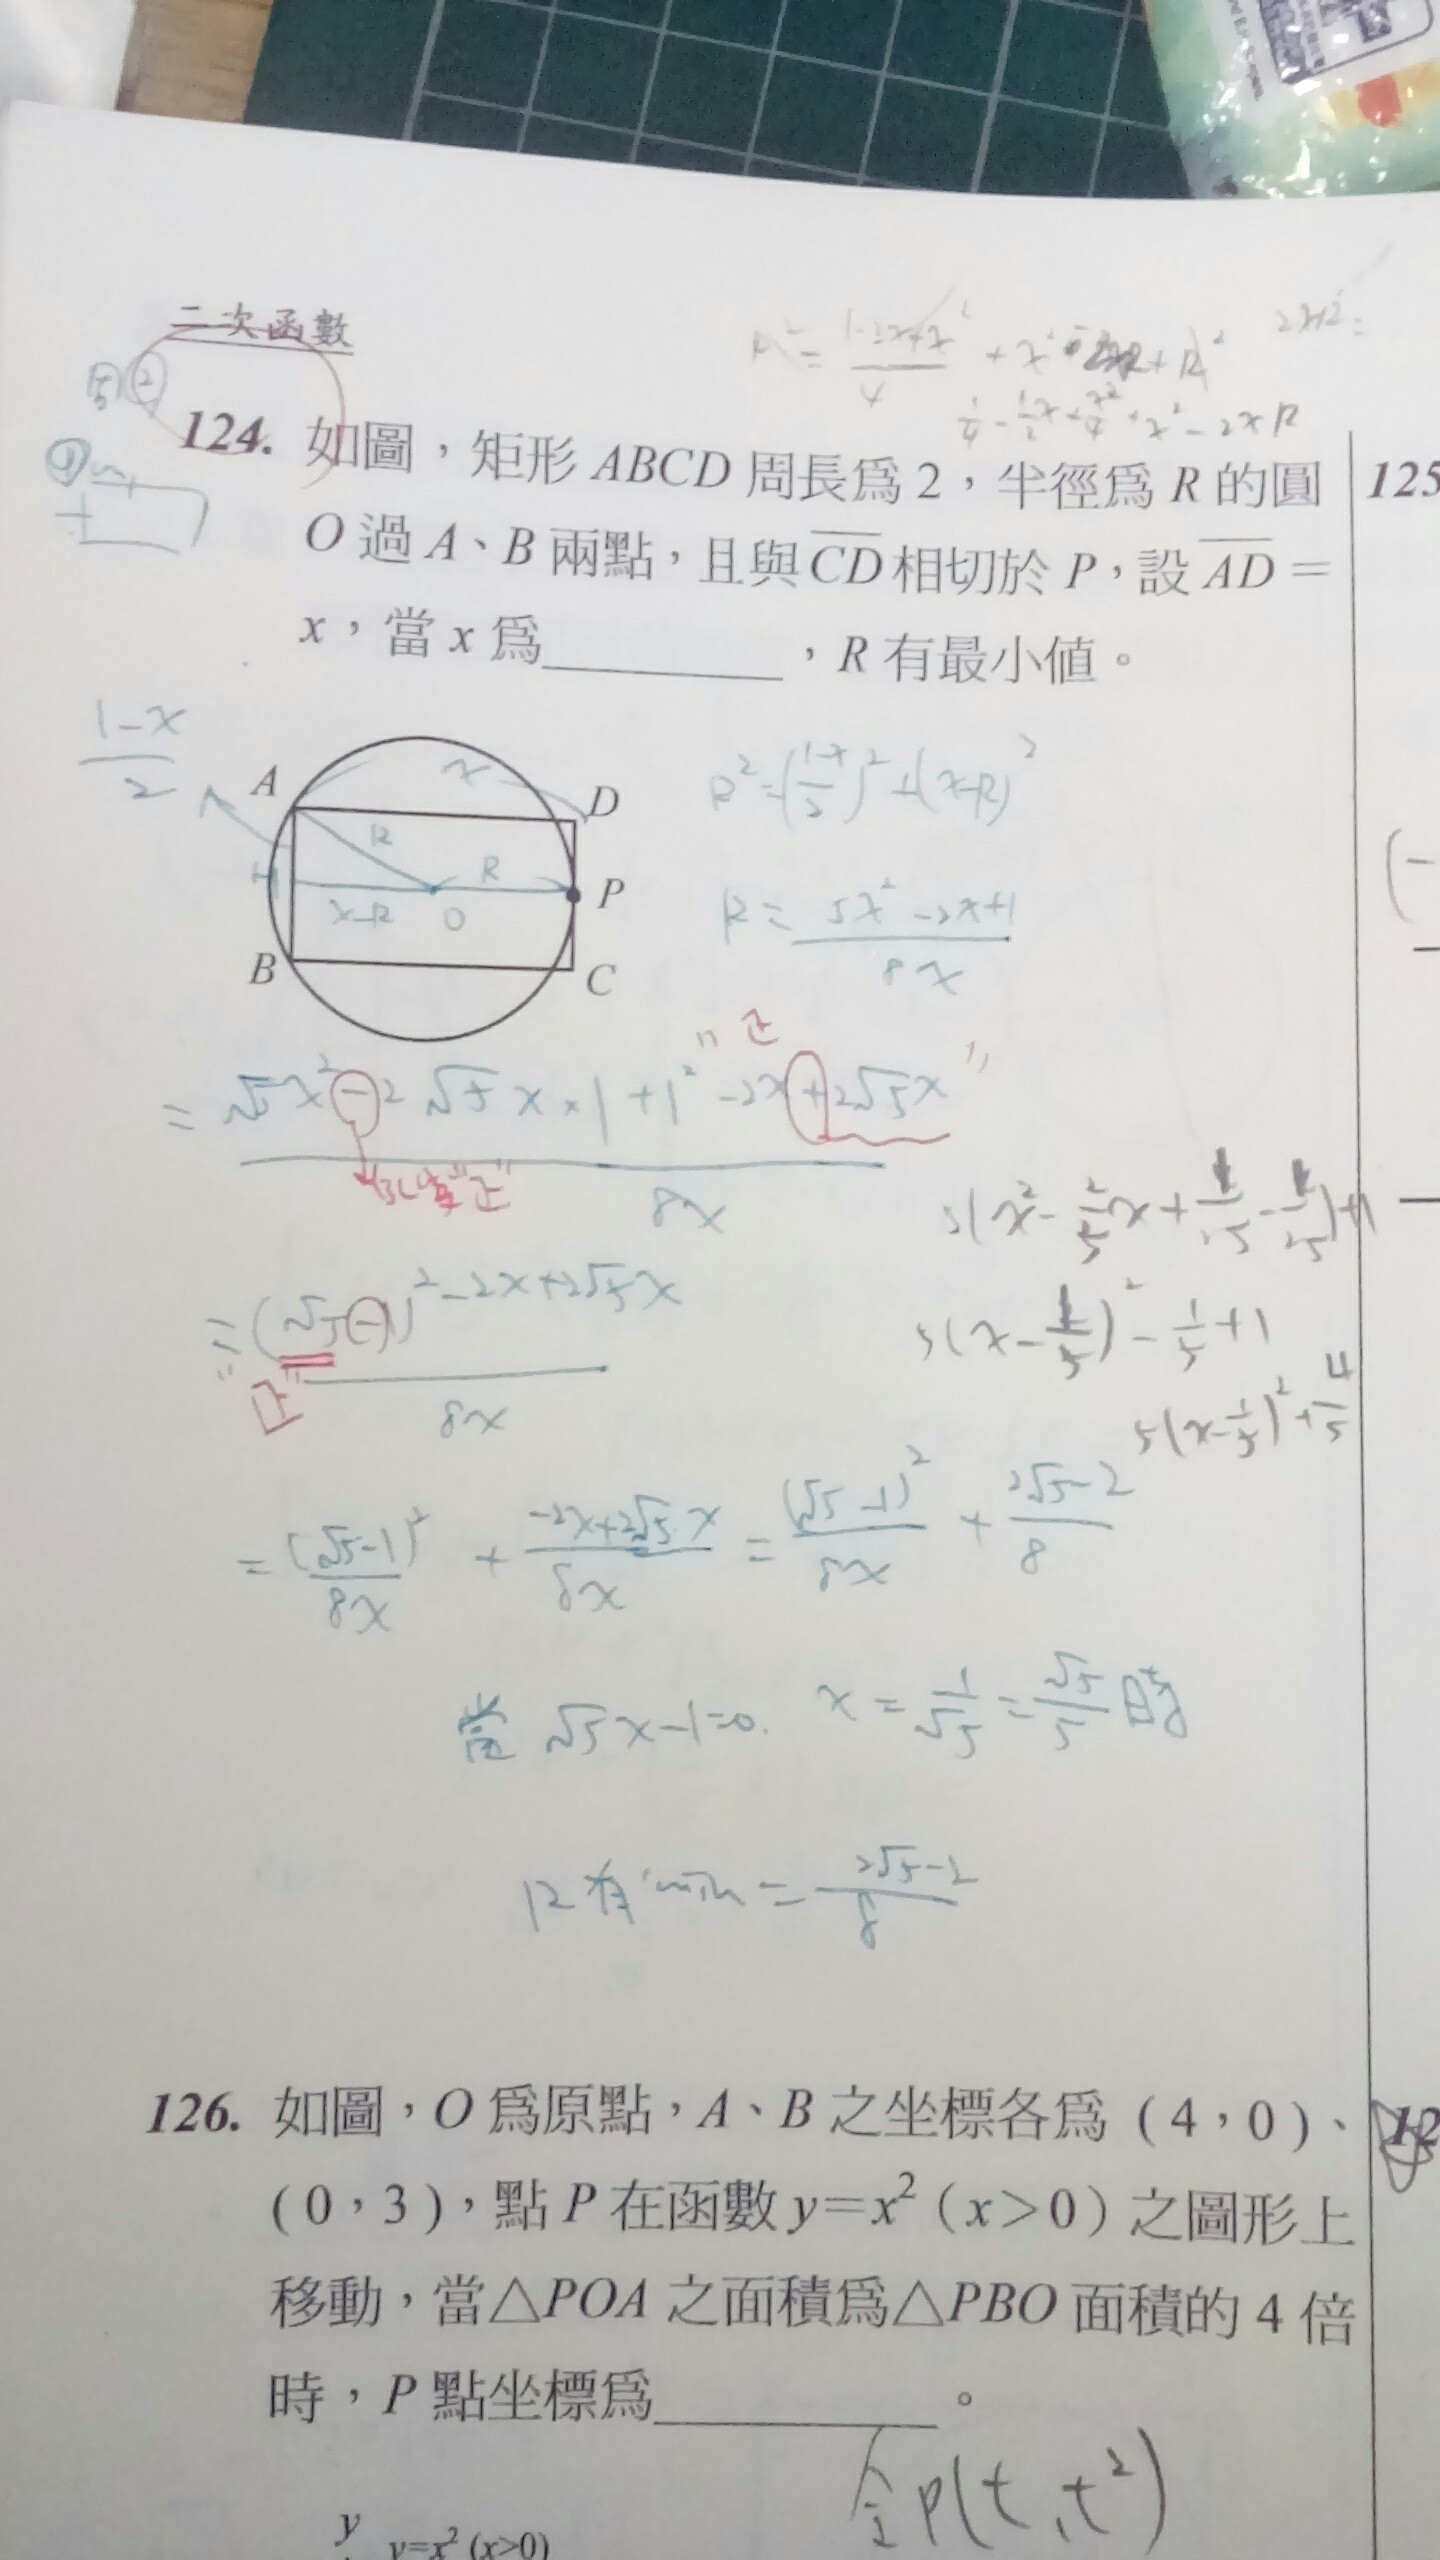 二次函數
R² = (1-2x+x²)/4 + x² - 2xR + R²
1/4 - 1/2x + x²/4 + x² - 2xR
124. 如圖，矩形 ABCD 周長爲 2，半徑爲 R 的圓
O 過 A、B 兩點，且與 CD 相切於 P，設 AD =
x，當 x 爲________，R 有最小値。
125
(1-x)/2
A
x
D
R
R
P
x-R
O
B
C
R² = ((1-x)/2)² + (x-R)²
R = (5x² - 2x + 1)/8x
= (√5x² - 2√5x×1 + 1² - 2x + 2√5x)/8x
"正"
"正"
5(x² - 2/5x + 1/25 - 1/25) + 1
= ((√5-1)² - 2x + 2√5x)/8x
"正"
5(x - 1/5)² - 1/5 + 1
5(x - 1/5)² + 4/5
= (√5-1)²/8x + (-2x+2√5x)/8x = (√5-1)²/8x + (2√5-2)/8
當 √5x-1=0. x = 1/√5 = √5/5 時
R 有 min = (2√5-2)/8
126. 如圖，O 爲原點，A、B 之坐標各爲 (4，0)、
(0，3)，點 P 在函數 y=x² (x>0) 之圖形上
移動，當△POA 之面積爲△PBO 面積的 4 倍
時，P 點坐標爲________。
令P(t,t²)
y
y=x² (x>0)